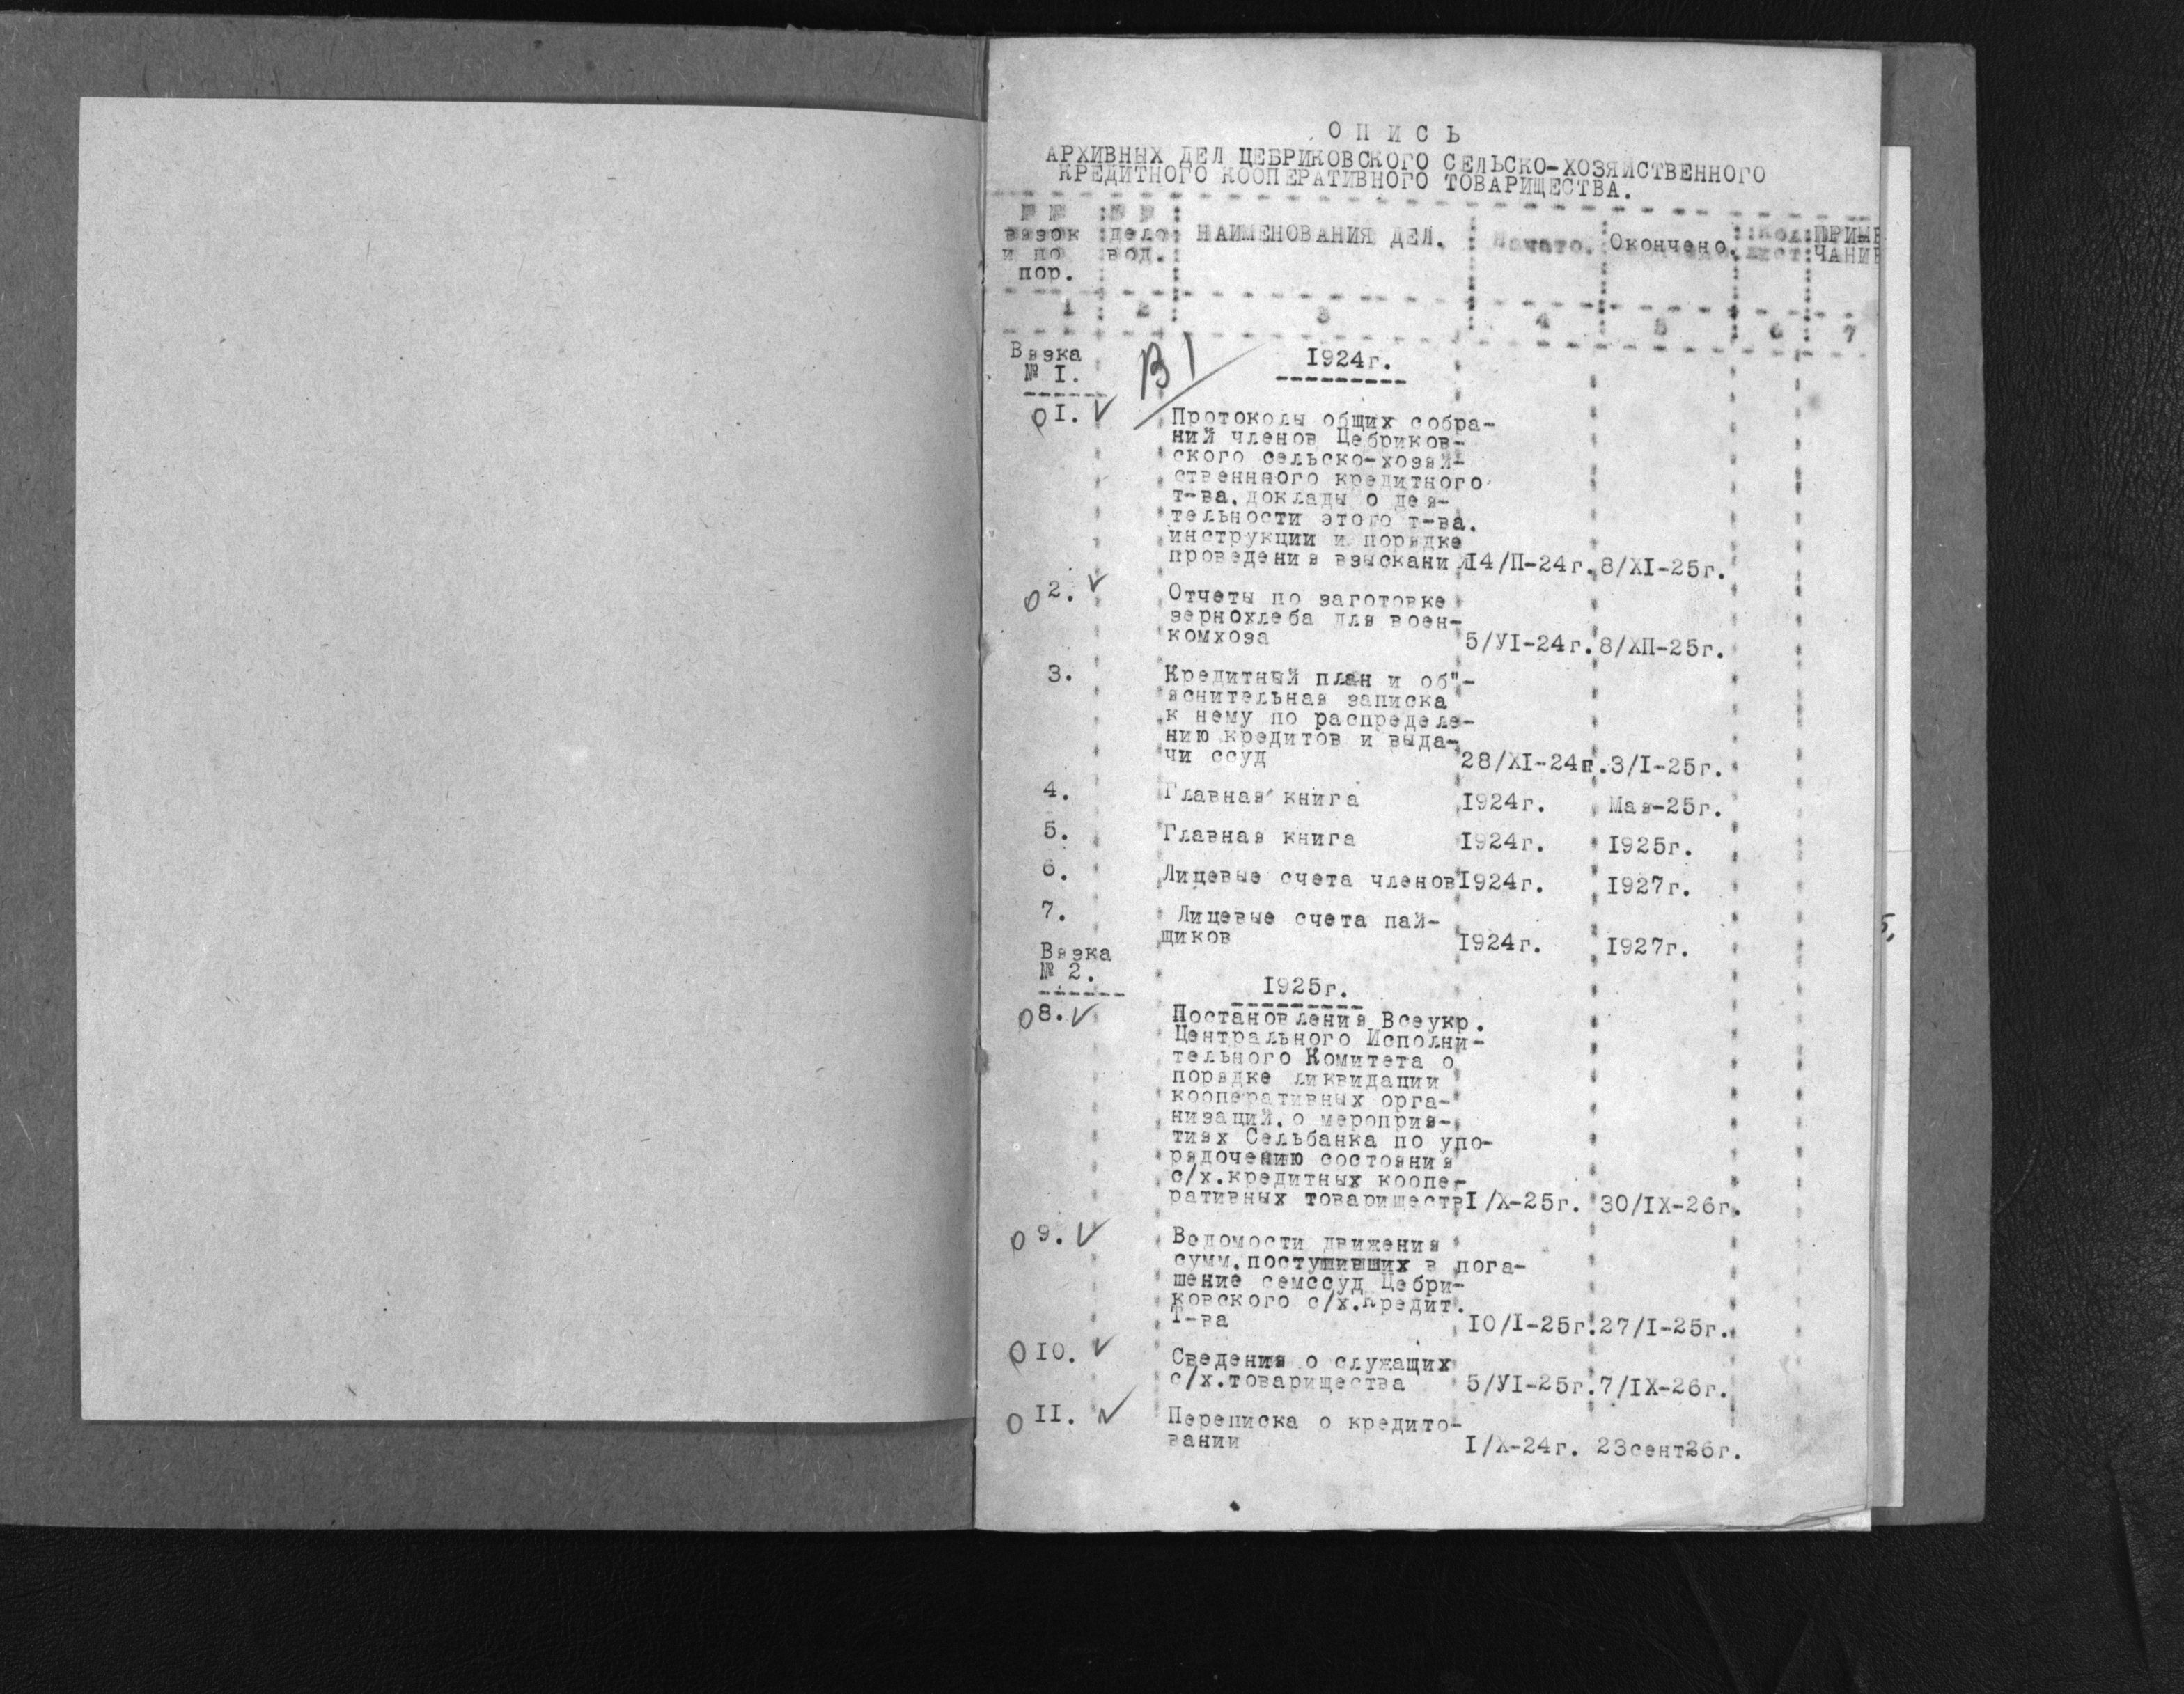 О П И С Ь
АРХИВНЫХ ДЕЛ ЦЕБРИКОВСКОГО СЕЛЬСКО-ХОЗЯЙСТВЕННОГО
КРЕДИТНОГО КООПЕРАТИВНОГО ТОВАРИЩЕСТВА.
№ № вязок и по пор. № № дело вод. НАИМЕНОВАНИЯ ДЕЛ. Начато. Окончено. Кол. лист. ПРИМЕ ЧАНИЕ
1 2 3 4 5 6 7
Вязка
№ I.
В 1
I924г.
0 I. ✓ Протоколы общих собра-
ний членов Цебриков-
ского сельско-хозяй-
ственняого кредитного
т-ва, доклады о дея-
тельности этого т-ва,
инструкции и порядке
проведения взыскани й I4/П-24г. 8/XI-25г.
0 2. ✓ Отчеты по заготовке
зернохлеба для воен-
комхоза 5/УI-24г. 8/ХП-25г.
3. Кредитный план и об"-
яснительная записка
к нему по распределе-
нию кредитов и выда-
чи ссуд 28/XI-24г. 3/I-25г.
4. Главная книга I924г. Мая-25г.
5. Главная книга I924г. I925г.
6. Лицевые счета членов I924г. I927г.
7. Лицевые счета пай-
щиков I924г. I927г.
Вязка
№ 2.
I925г.
0 8. ✓ Постановления Всеукр.
Центрального Исполни-
тельного Комитета о
порядке ликвидации
кооперативных орга-
низаций, о мероприя-
тиях Сельбанка по упо-
рядочению состояния
с/х.кредитных коопе-
ративных товариществ I/X-25г. 30/IX-26г.
0 9. ✓ Ведомости движения
сумм, поступивших в пога-
шение семссуд Цебри-
ковского с/х.Кредит.
Т-ва I0/I-25г. 27/I-25г.
0 I0. ✓ Сведения о служащих
с/х.товарищества 5/УI-25г. 7/IX-26г.
0 II. ✓ Переписка о кредито-
вании I/X-24г. 23сент26г.